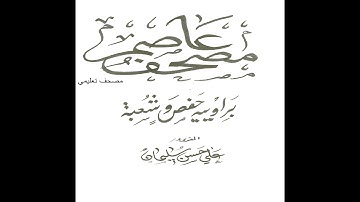 مصحف عاصم
مصحف تعليمي
براويیه حفص وشعبة
المقرئ
علي حسن سليمان